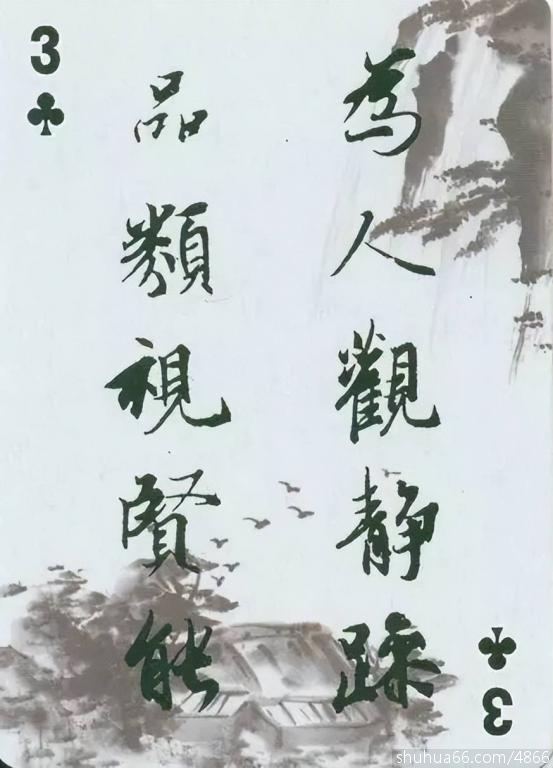 3
為人觀靜躁
品類視賢能
3
shuhua66.com/4866